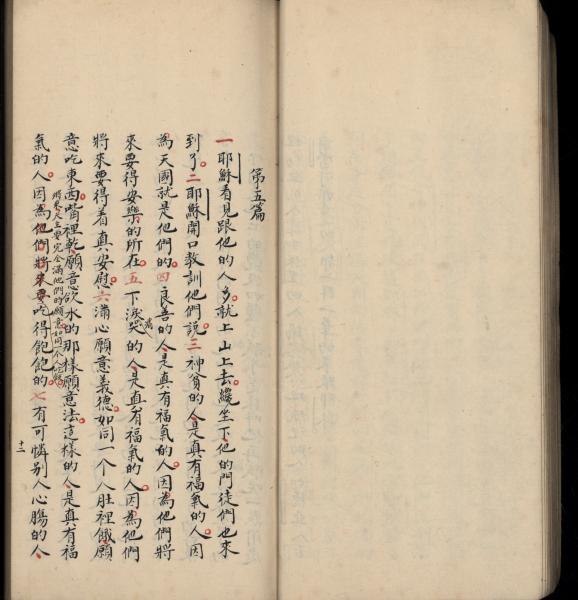 第五篇
一耶穌看見跟他的人多就上山上去纔坐下他的門徒們也來
到了二耶穌開口教訓他們說三神貧的人是真有福氣的人因
為天國就是他們的四良善的人是真有福氣的人因為他們將
來要得安樂的所在五下淚哭的人是真有福氣的人因為他們
將來要得著真安慰六滿心願意義德如同一個人肚裡餓願
意吃東西嘴裡乾願意飲水的那樣願意法這樣的人是真有福
氣的人因為他們將來要吃得飽飽的七有可憐別人心腸的人
將來天上要完全滿他們的願意如同一個人
十二